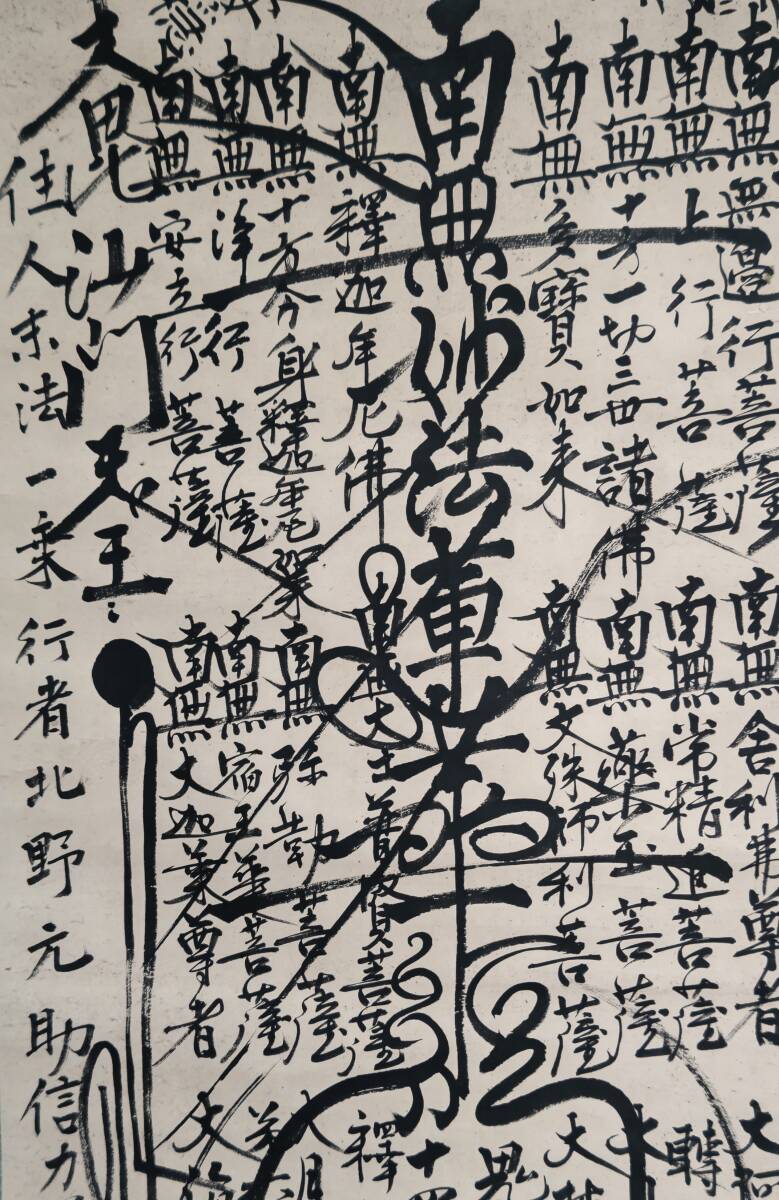 南無無邊行菩薩
南無上行菩薩
南無十方一切三世諸佛
南無多寶如来
南無妙法蓮華経
南無釋迦牟尼佛
南無十方分身釋迦牟尼
南無浄行菩薩
南無安立行菩薩
大毘沙門天王
南無舎利弗尊者
南無常精進菩薩
南無薬王菩薩
南無文殊師利菩薩
大士普賢菩薩
南無弥勒菩薩
南無宿王華菩薩
南無大迦葉尊者
轉
大
鬼
十
釋
大
住人末法一乗行者北野元助信力